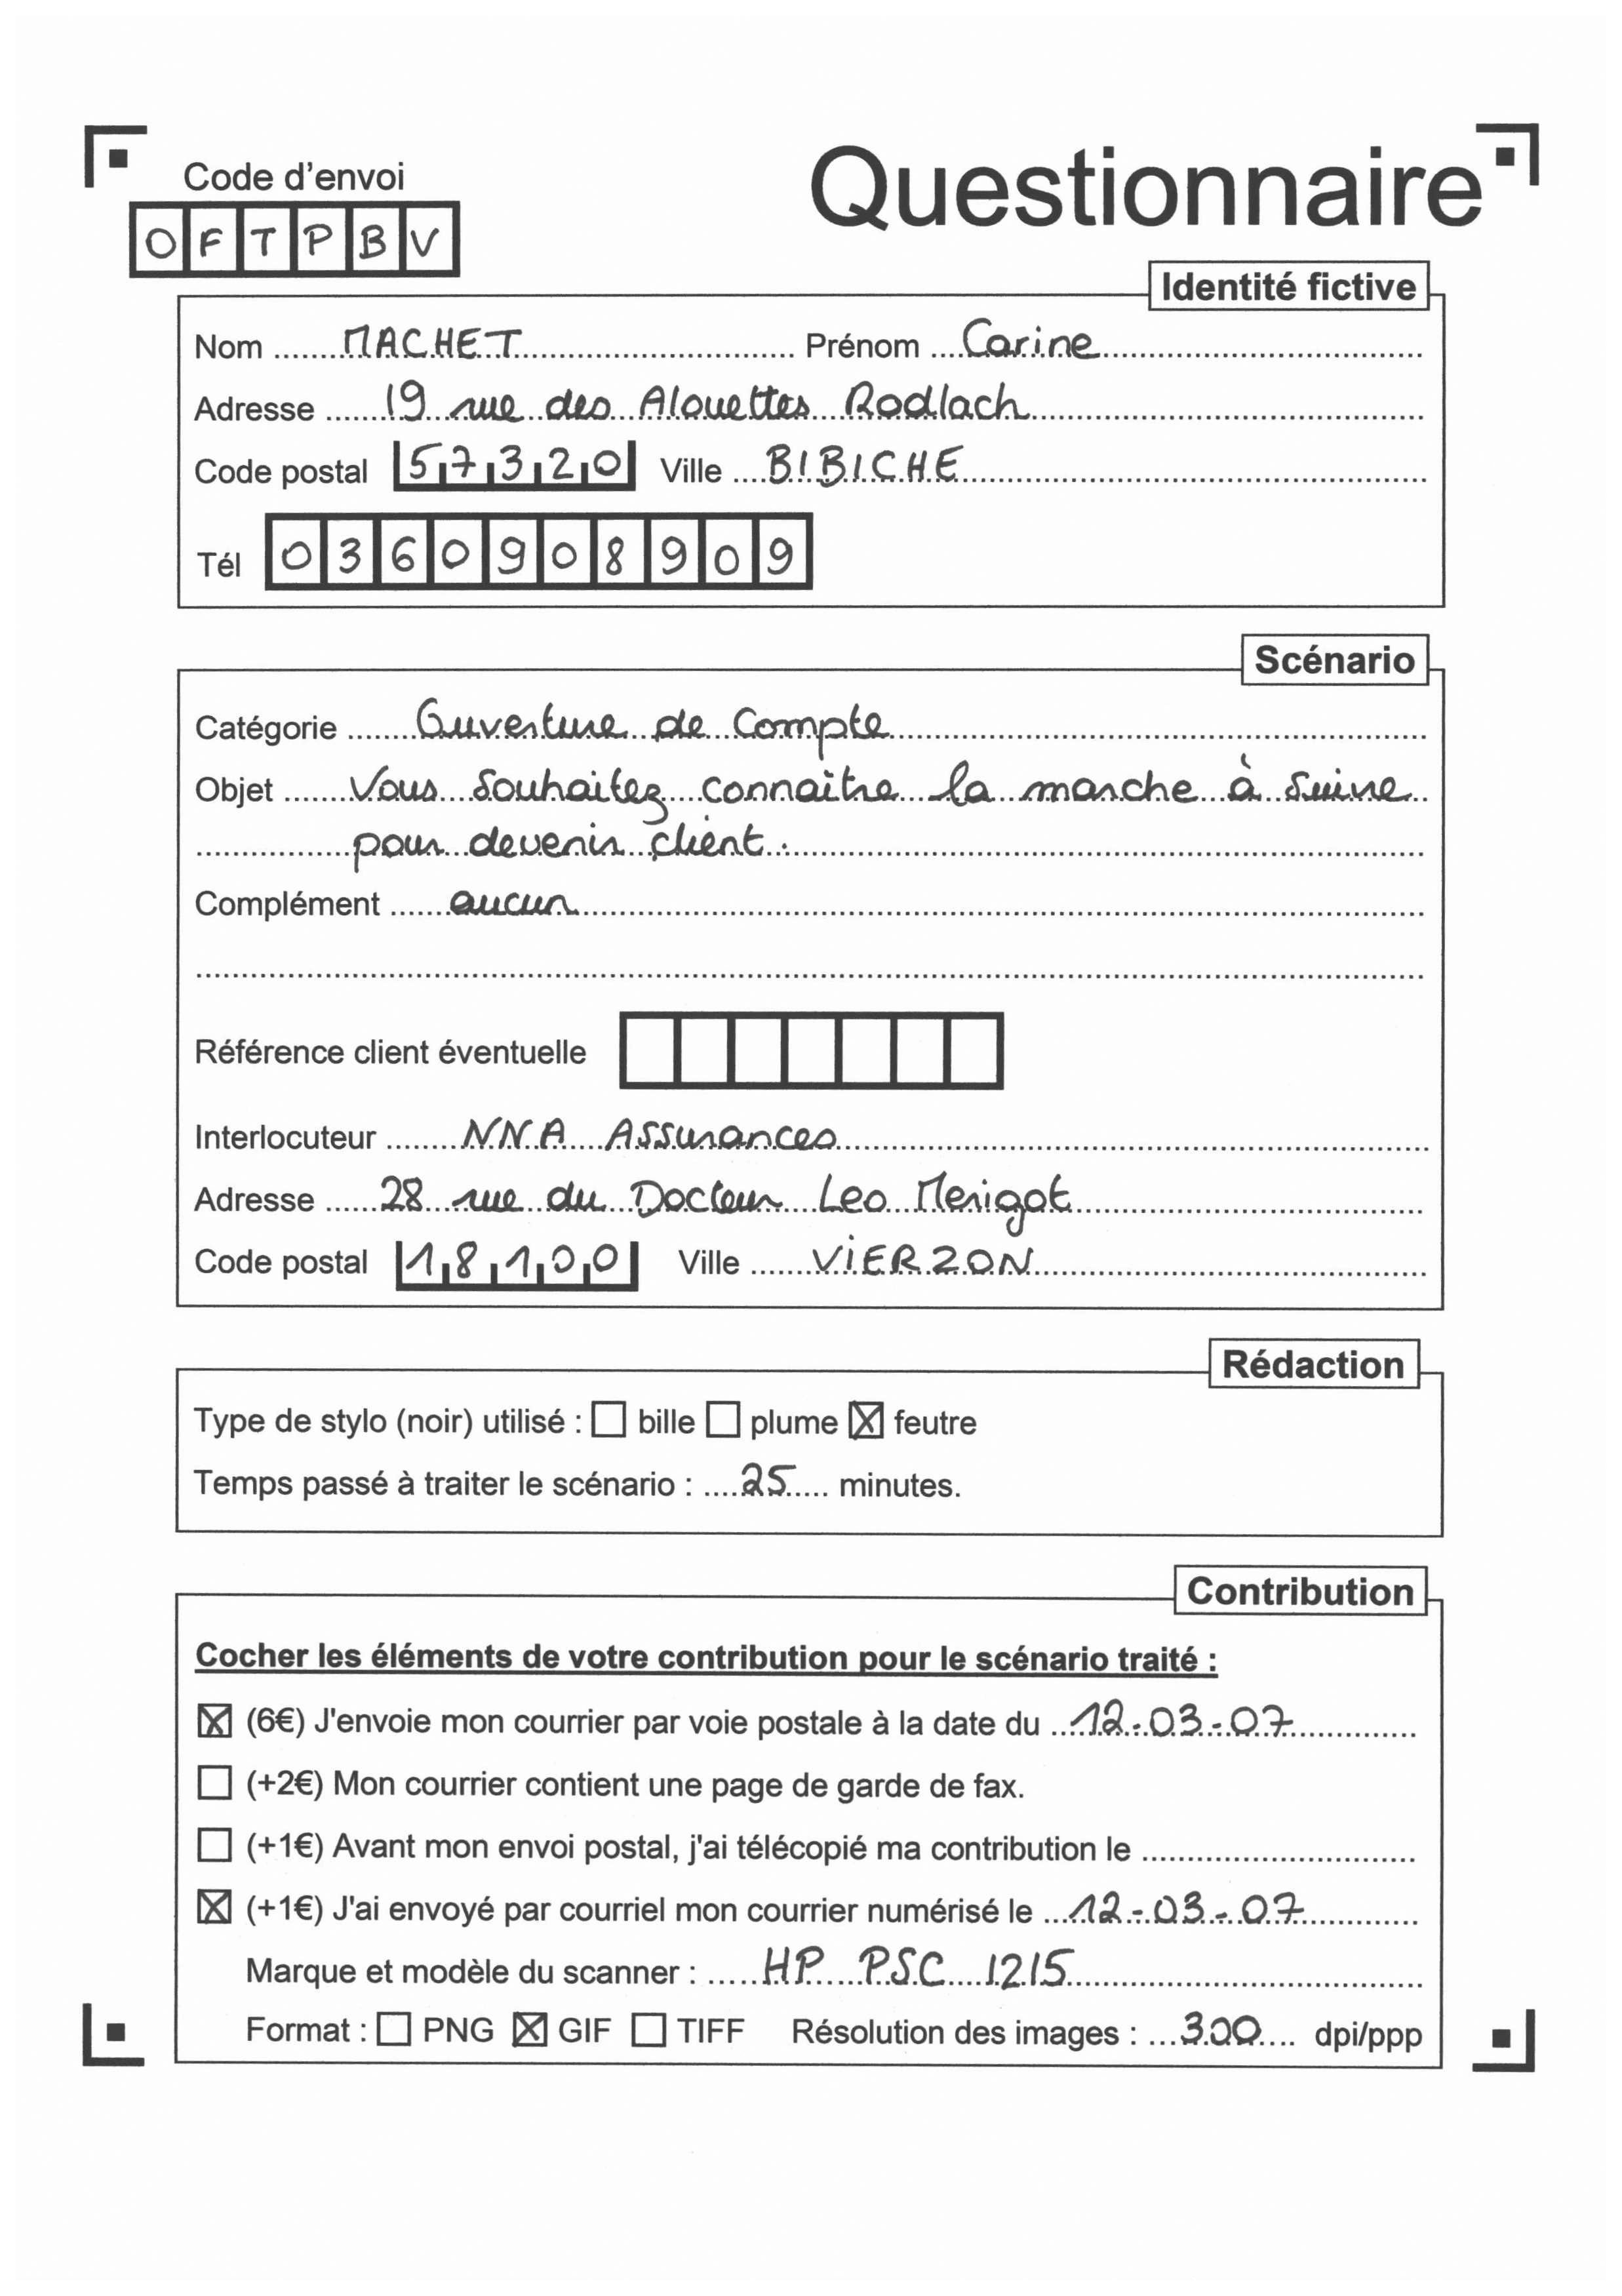 Code d'envoi
Questionnaire
OFTPBV
Identité fictive
Nom ....... MACHET ....... Prénom .... Carine
Adresse ...... 19 rue des Alouettes Rodlach
Code postal 57320 Ville .... BIBICHE
Tél 0360908909
Scénario
Catégorie ....... Ouverture de Compte
Objet ....... Vous souhaitez connaître la marche à suivre
pour devenir client.
Complément ...... aucun
Référence client éventuelle
Interlocuteur ........ NNA Assurances
Adresse ...... 28 rue du Docteur Leo Merigot
Code postal 18100 Ville ....... ViERZON
Rédaction
Type de stylo (noir) utilisé : ☐ bille ☐ plume ☒ feutre
Temps passé à traiter le scénario : .... 25 .... minutes.
Contribution
Cocher les éléments de votre contribution pour le scénario traité :
☒ (6€) J'envoie mon courrier par voie postale à la date du .. 12-03-07
☐ (+2€) Mon courrier contient une page de garde de fax.
☐ (+1€) Avant mon envoi postal, j'ai télécopié ma contribution le ...........................
☒ (+1€) J'ai envoyé par courriel mon courrier numérisé le ... 12-03-07
Marque et modèle du scanner : ..... HP PSC 1215
Format : ☐ PNG ☒ GIF ☐ TIFF Résolution des images : ... 300 .... dpi/ppp